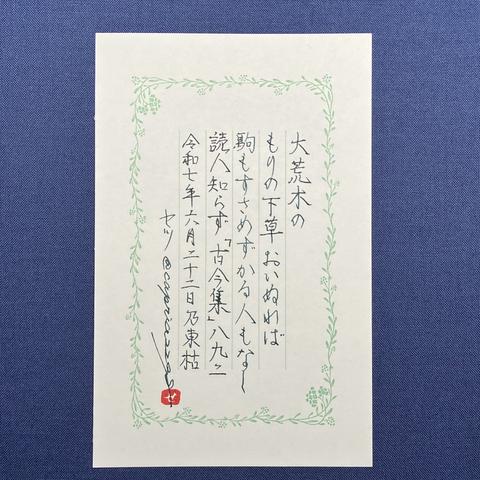 大荒木の
もりの下草おいぬれば
駒もすさめずかる人もなし
読人知らず『古今集』八九二
令和七年六月二十二日乃東枯
セツ
ぜ